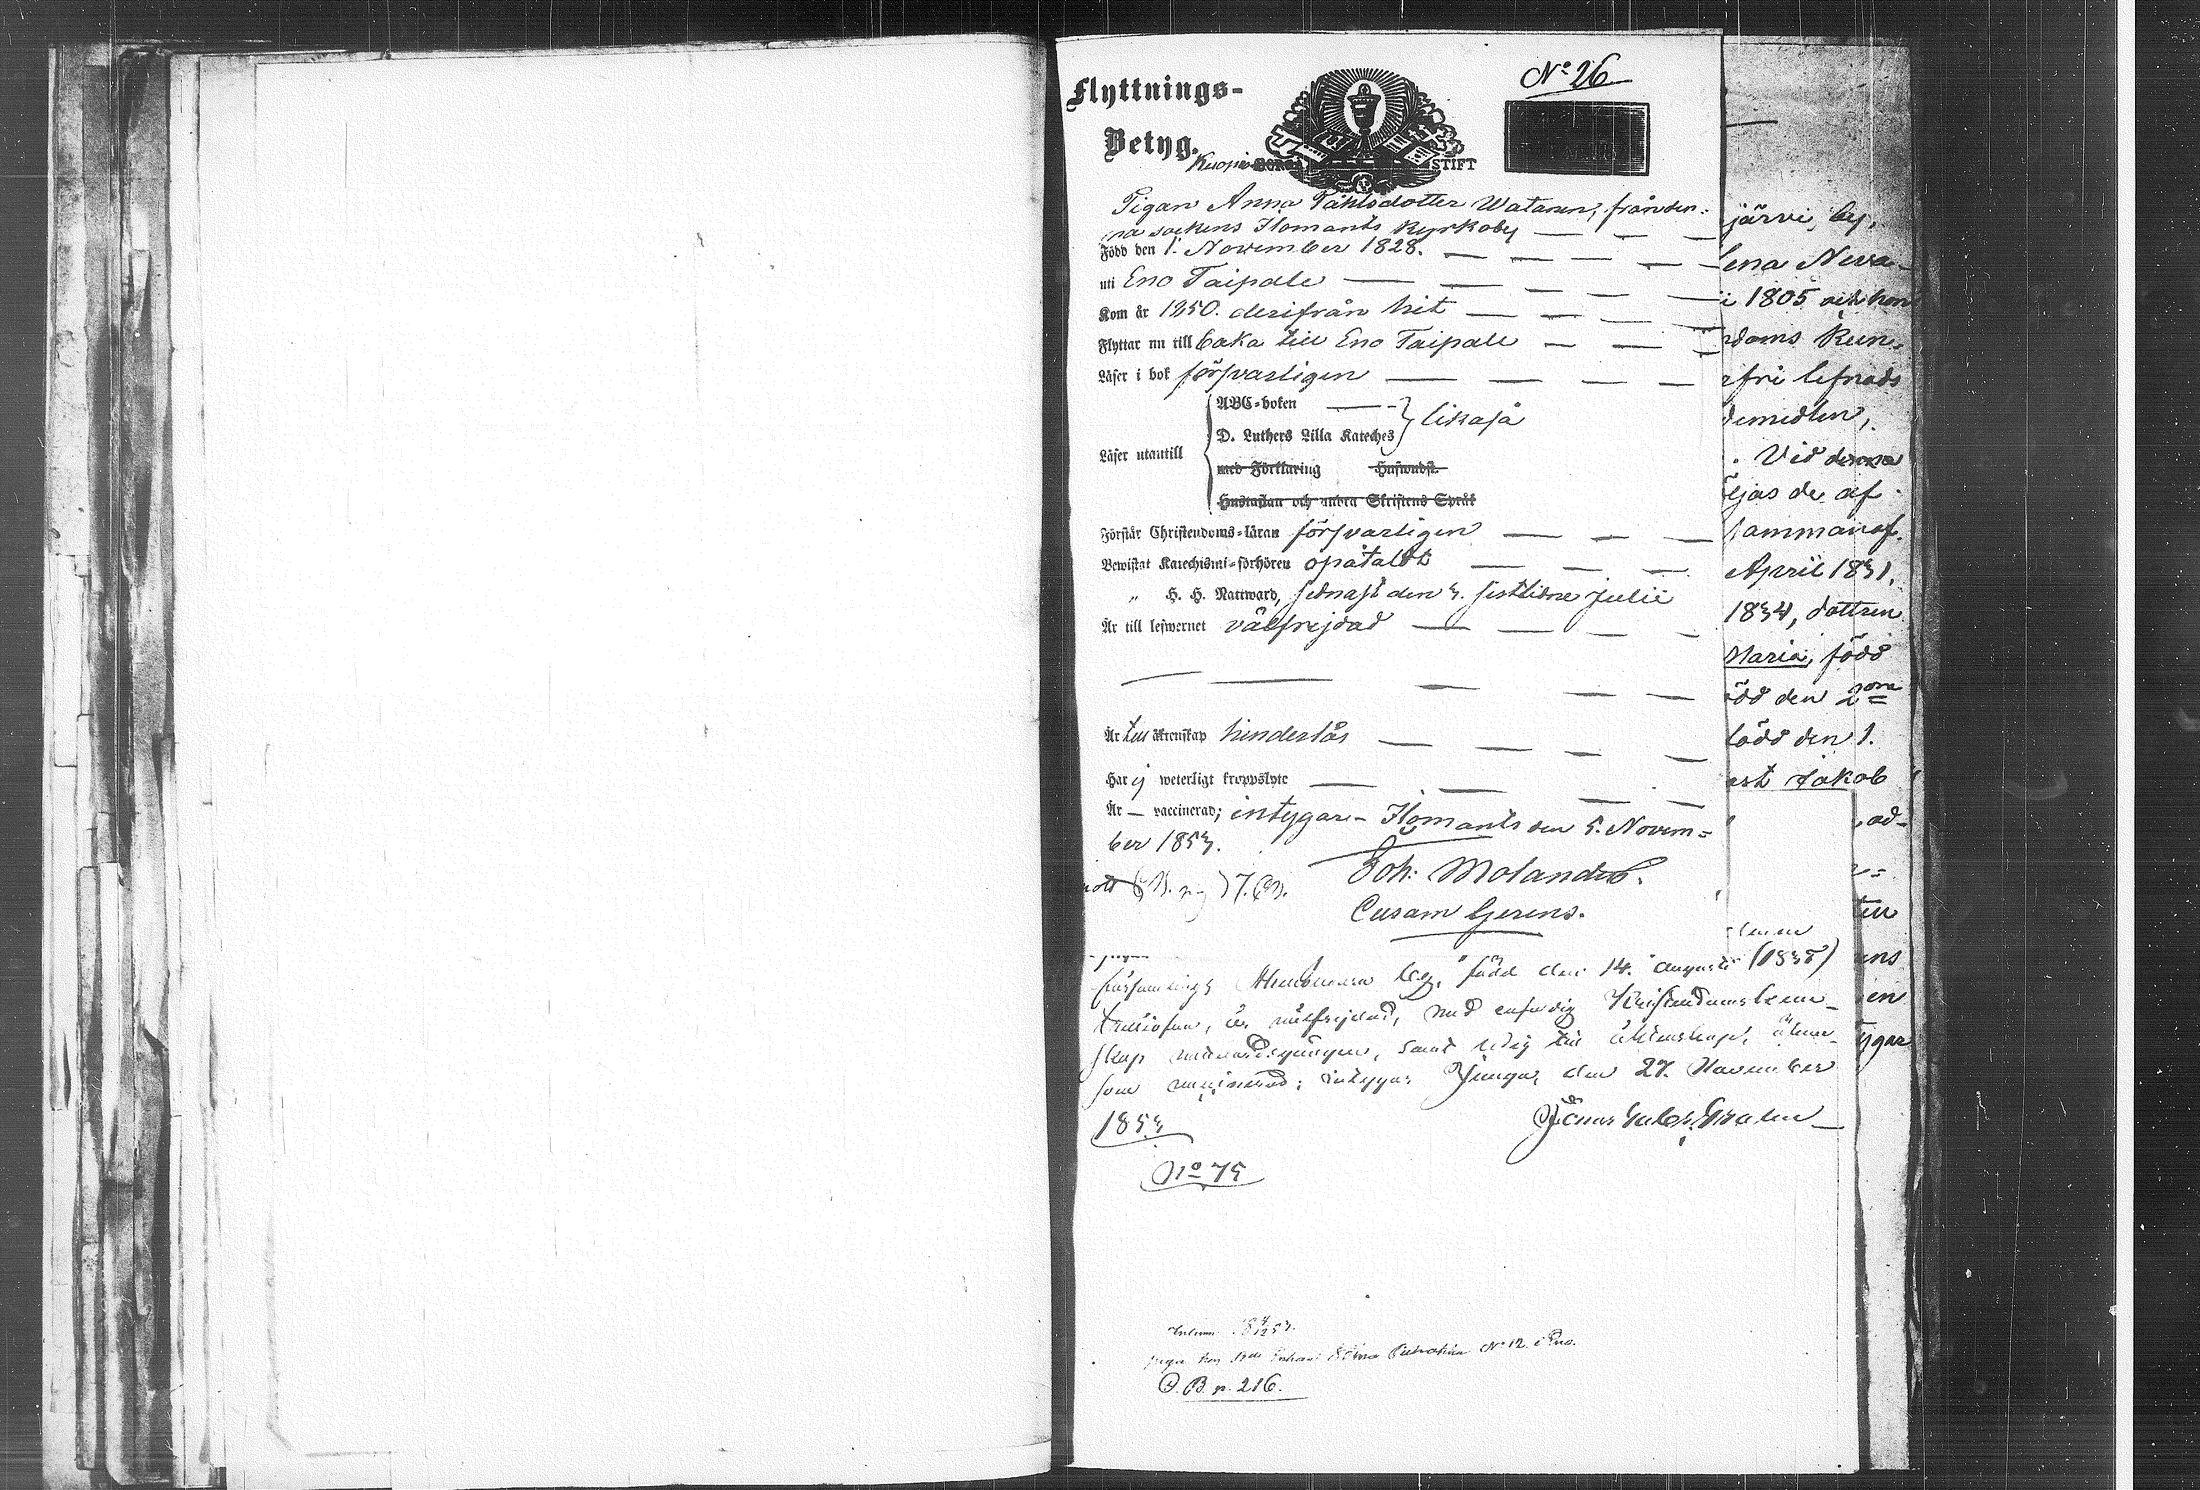 Flyttnings-
Betyg.
No 26
Kuopio BORGÅ STIFT
Pigan Anna Påhlsdotter Watanen, från den-
na sockens Ilomants Kyrkoby
Född den 1. November 1828.
uti Eno Taipale
Kom år 1850. derifrån hit
Flyttar nu till baka till Eno Taipale
Läser i bok försvarligen
Läser utantill
ABC-boken
D. Luthers Lilla Kateches } likaså
med Förklaring Hufwudst.
Hustaflan och andra Skriftens Språk
Förstår Christendoms-läran försvarligen
Bewistat Katechismi-förhören opåtaldt
" H. H. Nattward, sednast den 3. sistlidne Julii
Är till lefwernet välfrejdad
Är till äktenskap hinderlös
Har ej weterligt kroppslyte
Är — vaccinerad; intygar - Ilomants den 5. Novem-
ber 1853.
Joh: Molander.
Cusam Gerens.
järvi, by,
lena Neva-
i 1805 och hon
doms kun-
fri lefnads
demedlen,
. Vid denna
ljas de af
sammanaf.
April 1831,
1834, dottren
Maria, född
ödd den 2dra
född den 1.
est Jakob
ad-
ten
uns
en
tygar
församlings by, född den 14. augusti (1838)
är välfrejdad, med enfaldig Kristendomskunn-
skap samt ledig till äktenskap, äfven-
som vaccinerad; intygar Pjunga, den 27. November
1853
No 75
1853.
No 12. i Eno.
B. p. 216.